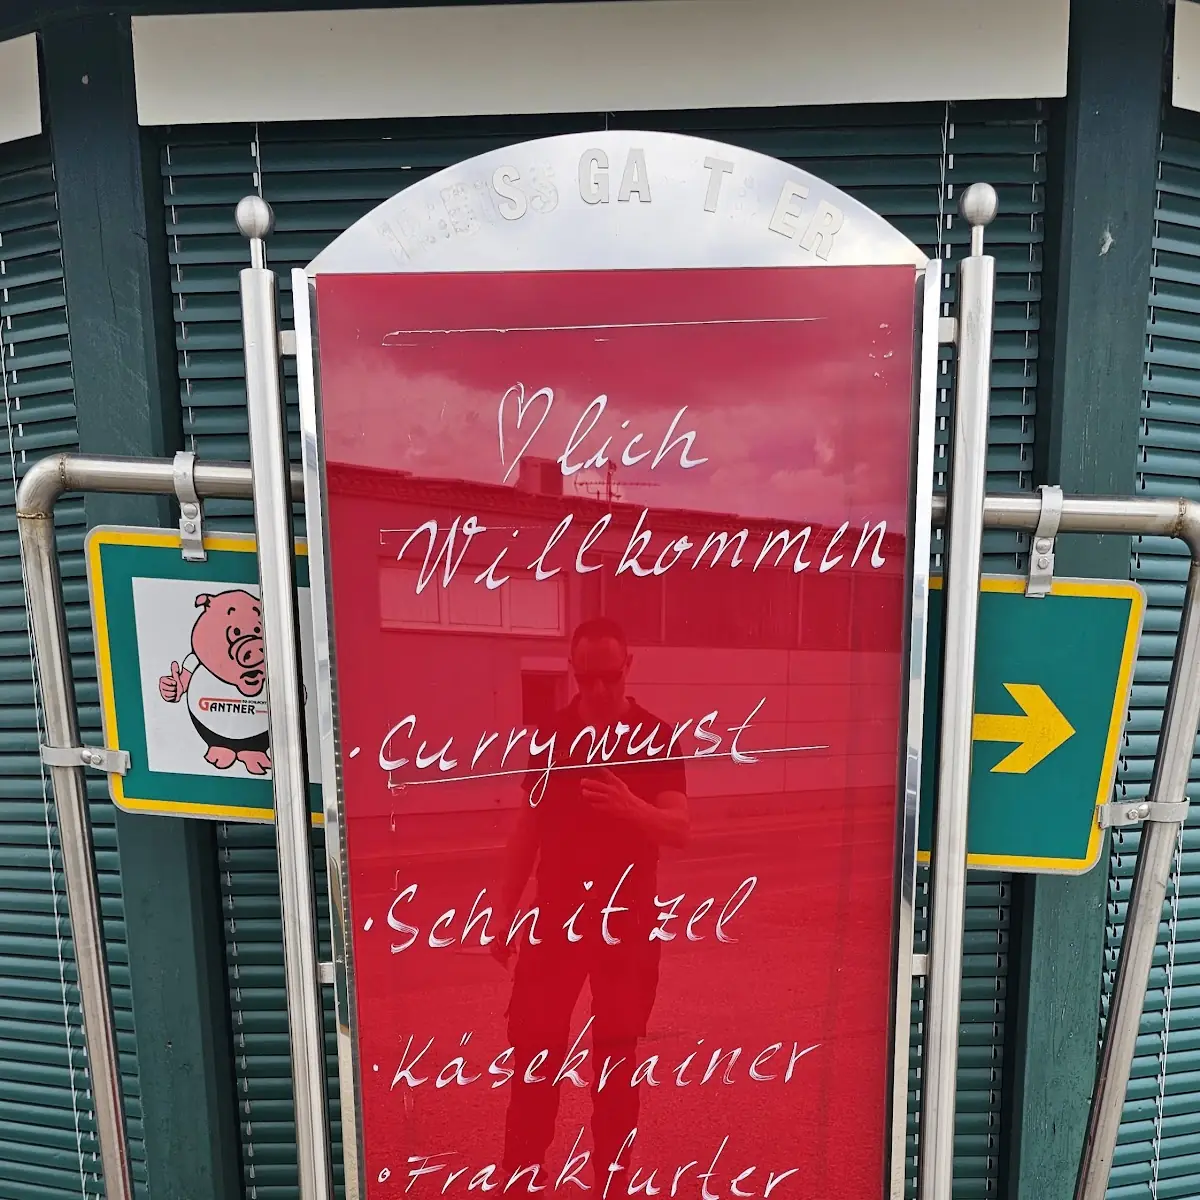 GA T ER
♡lich
Willkommen
GANTNER
· Currywurst
· Schnitzel
· Käsekrainer
· Frankfurter